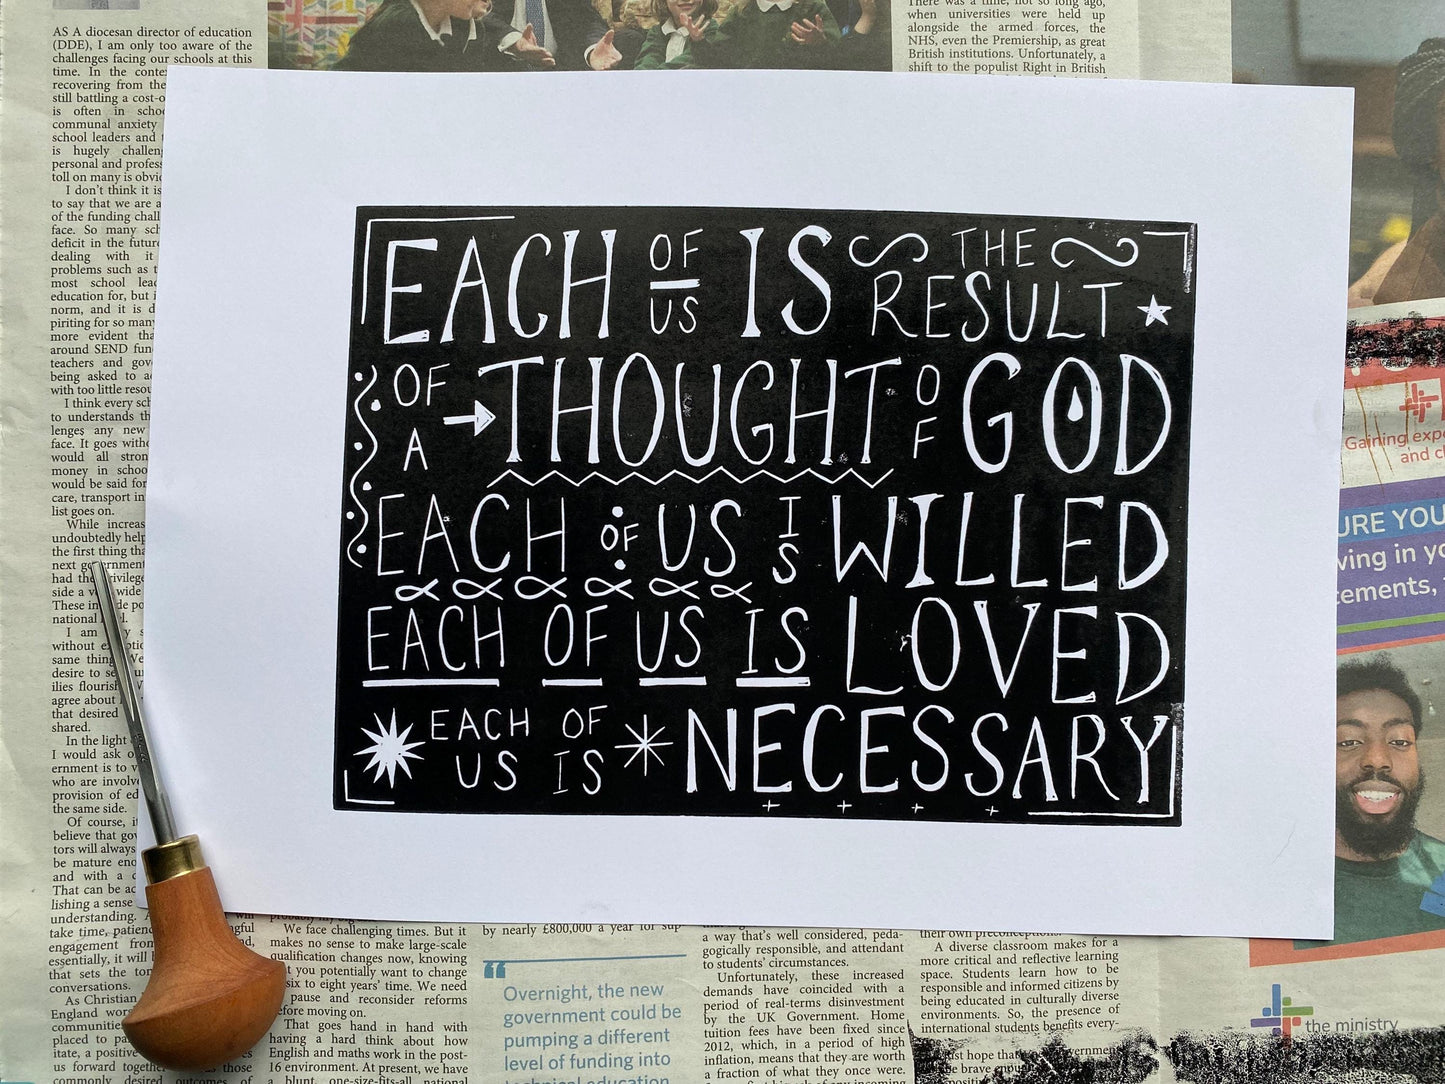 AS A diocesan director of education
(DDE), I am only too aware of the
challenges facing our schools at this
time. In the
recovering from the
still battling a
is often in
communal anxiety
school leaders and
is hugely
personal and
toll on many is
I don't think it is
to say that we are a
of the funding
face. So many
deficit in the future
dealing with it
problems such as
most school
education for, but
norm, and it is
piriting for so many
more evident
around SEND
teachers and
being asked to
with too little
I think every
to understands
lenges any new
face. It goes
would all
money in
would be said for
care, transport in
list goes on.
While
undoubtedly help
the first thing
next government
had the
side a wide
These
national
I am
without
same thing
desire to
ilies flourish
agree about
that desired
shared.
In the light
I would ask
ernment is to
who are
provision of
the same side.
Of course,
believe that
tors will always
be mature
and with a
That can be
lishing a sense
understanding.
take time,
engagement from
essentially, it will
that sets the
conversations.
As Christian
England
communities
placed to
itate, a positive
us forward together those
commonly desired outcomes of
There was a time, not so long ago,
when universities were held up
alongside the armed forces, the
NHS, even the Premiership, as great
British institutions. Unfortunately, a
shift to the populist Right in British
EACH OF US IS THE RESULT
OF A THOUGHT OF GOD
EACH OF US IS WILLED
EACH OF US IS LOVED
EACH OF US IS NECESSARY
Gaining
and
URE YOU
ving in
cements,
We face challenging times. But it
makes no sense to make large-scale
qualification changes now, knowing
you potentially want to change
six to eight years' time. We need
pause and reconsider reforms
before moving on.
That goes hand in hand with
having a hard think about how
English and maths work in the post-
16 environment. At present, we have
a blunt, one-size-fits-all national
by nearly £800,000 a year for
Overnight, the new
government could be
pumping a different
level of funding into
technical education
a way that's well considered, peda-
gogically responsible, and attendant
to students' circumstances.
Unfortunately, these increased
demands have coincided with a
period of real-terms disinvestment
by the UK Government. Home
tuition fees have been fixed since
2012, which, in a period of high
inflation, means that they are worth
a fraction of what they once were.
their own preconceptions.
A diverse classroom makes for a
more critical and reflective learning
space. Students learn how to be
responsible and informed citizens by
being educated in culturally diverse
environments. So, the presence of
international students benefits every-
just hope that government
the brave enough
the ministry